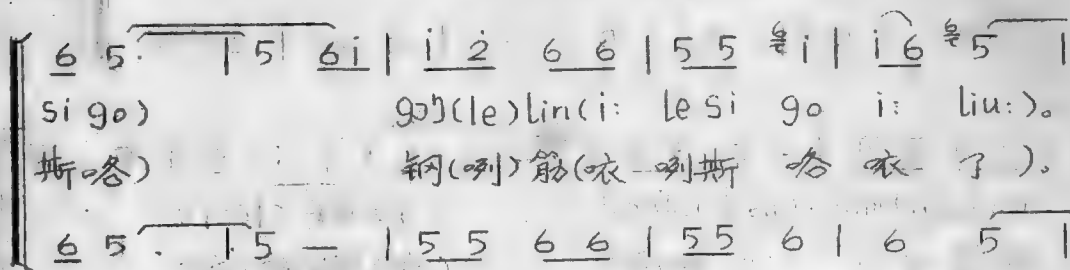 6 5. | 5 6i | i 2̇ 6 6 | 5 5 i | i 6 5 |
si go) goŋ(le)lin(i: le si go i: liu:)。
斯咯) 钢(咧)筋(咴咧斯 咯 咴 了)。
6 5. | 5 — | 5 5 6 6 | 5 5 6 | 6 5 |